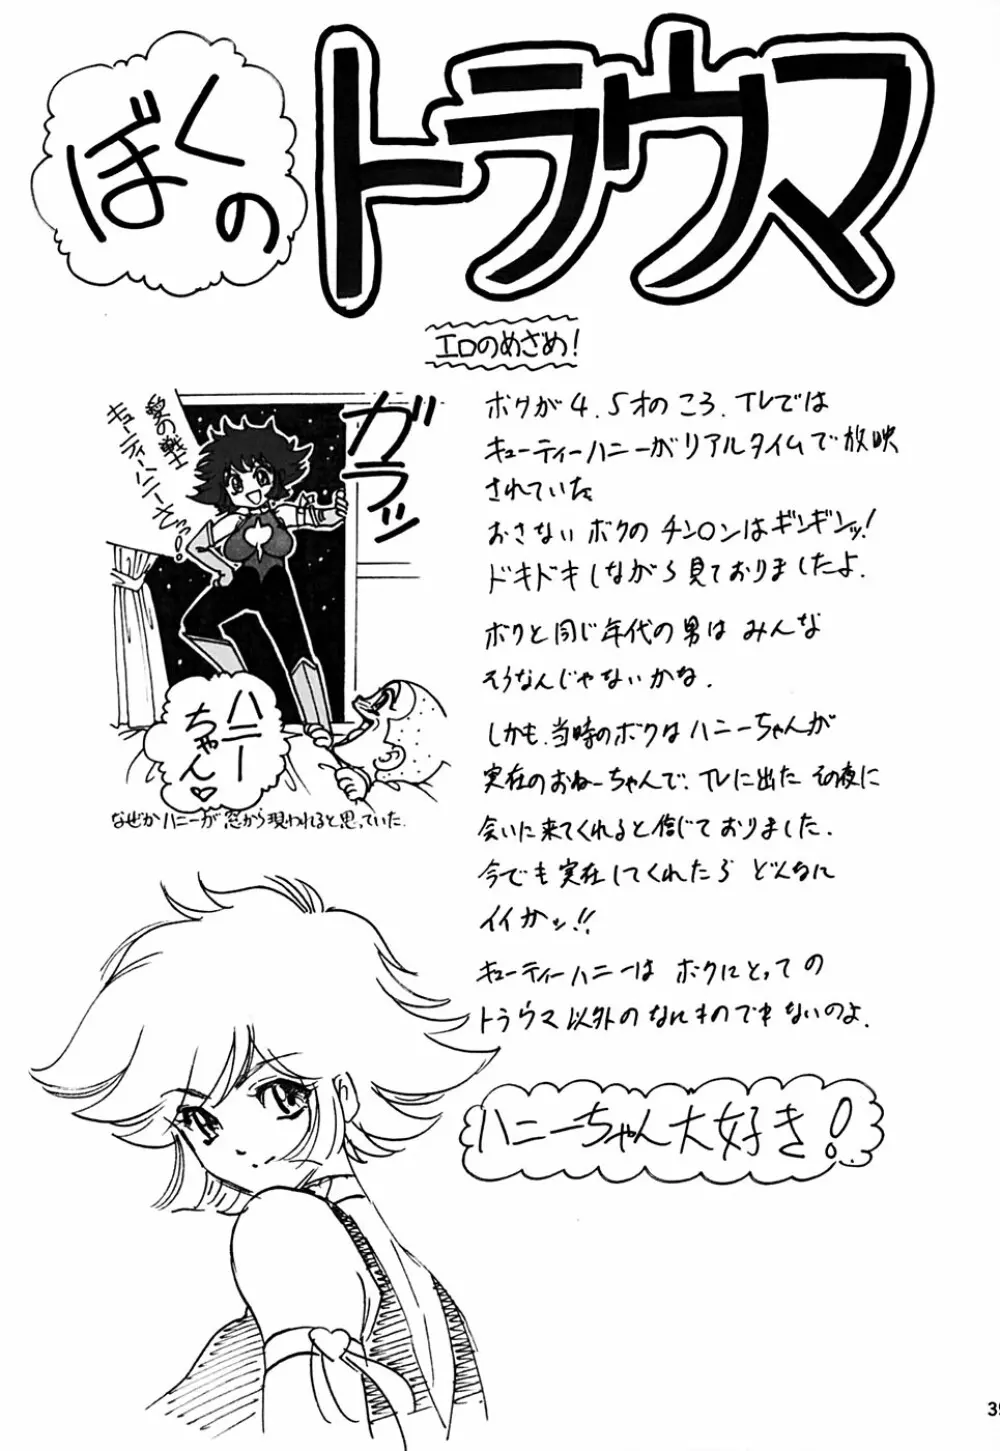 ぼくの
トラウマ
エロのめざめ!
愛の戦士
キューティーハニーさっ!
ガラッ
ハニー
ちゃん♡
なぜかハニーが窓から現われると思っていた.
ボクが4、5才のころ、TVでは
キューティーハニーがリアルタイムで放映
されていた。
ドキドキしながら見ておりましたよ.
ボクと同じ年代の男はみんな
そうなんじゃないかな.
しかも、当時のボクはハニーちゃんが
実在のおねーちゃんで、TVに出たその夜に
会いに来てくれると信じておりました.
今でも実在してくれたらどんなに
イイかッ!!
キューティーハニーはボクにとっての
トラウマ以外のなにものでもないのよ.
ハニーちゃん大好き!
39